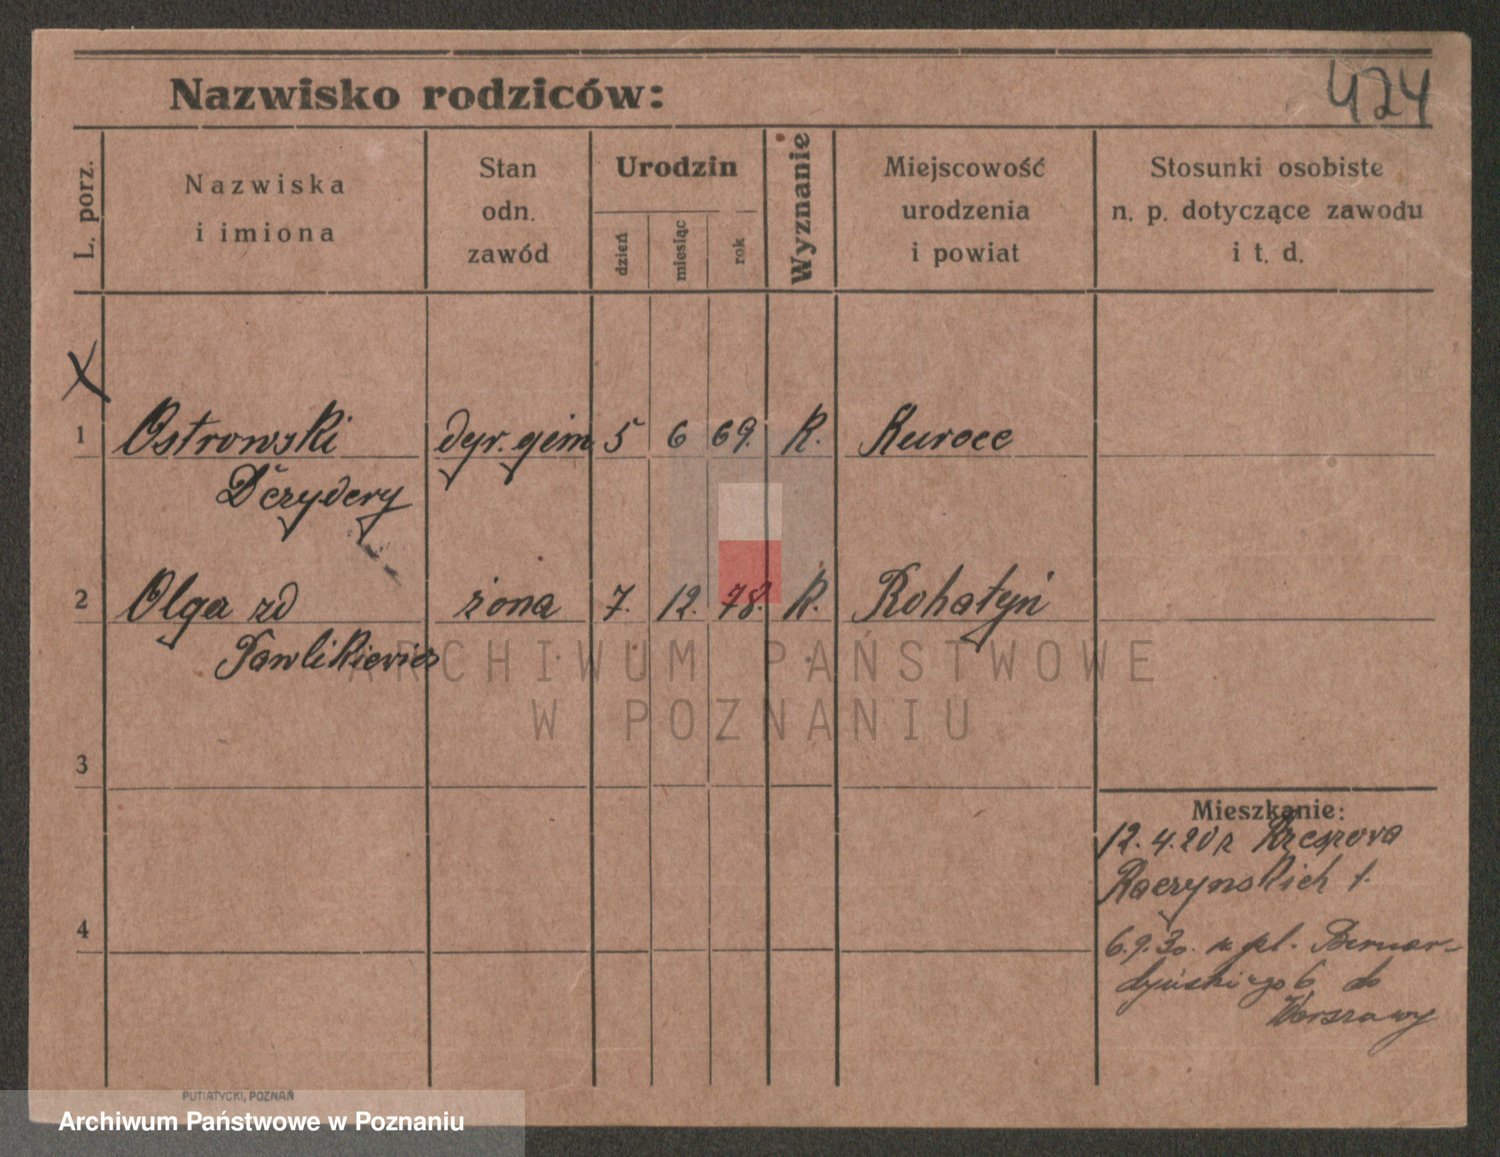 424
Nazwisko rodziców:
L. porz.
Nazwiska
i imiona
Stan
odn.
zawód
Urodzin
dzień
miesiąc
rok
Wyznanie
Miejscowość
urodzenia
i powiat
Stosunki osobiste
n. p. dotyczące zawodu
i t. d.
X
1 Ostrowski dyr. gim 5 6 69. K. Kuroce
Dezydery
2 Olga zd żona 7. 12. 78. K. Rohatyń
Pawlikiewicz
ARCHIWUM PAŃSTWOWE
W POZNANIU
3
Mieszkanie:
12.4.20 z
Raczynskich 1.
4
6.9.30. z pl. Bernar-
dyńskiego 6 do
Warszawy
PUTIATYCKI, POZNAŃ
Archiwum Państwowe w Poznaniu